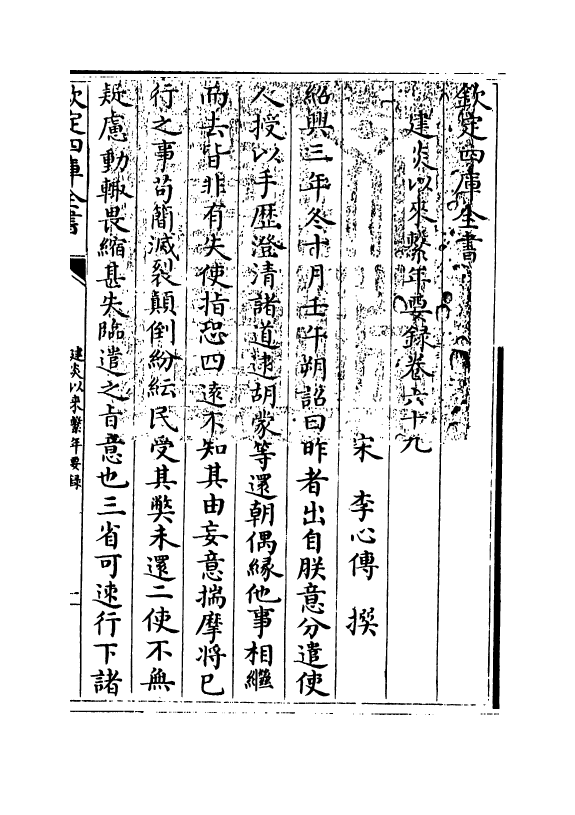 欽定四庫全書
建炎以來繫年要錄卷六十九
宋 李心傳 撰
紹興三年冬十月壬午朔詔曰昨者出自朕意分遣使
人授以手歷澄清諸道逮胡蒙等還朝偶緣他事相繼
而去皆非有失使指恐四遠不知其由妄意揣摩將已
行之事苟簡滅裂顛倒紛紜民受其弊未還二使不無
疑慮動輒畏縮甚失臨遣之旨意也三省可速行下諸
欽定四庫全書
建炎以來繫年要錄
一